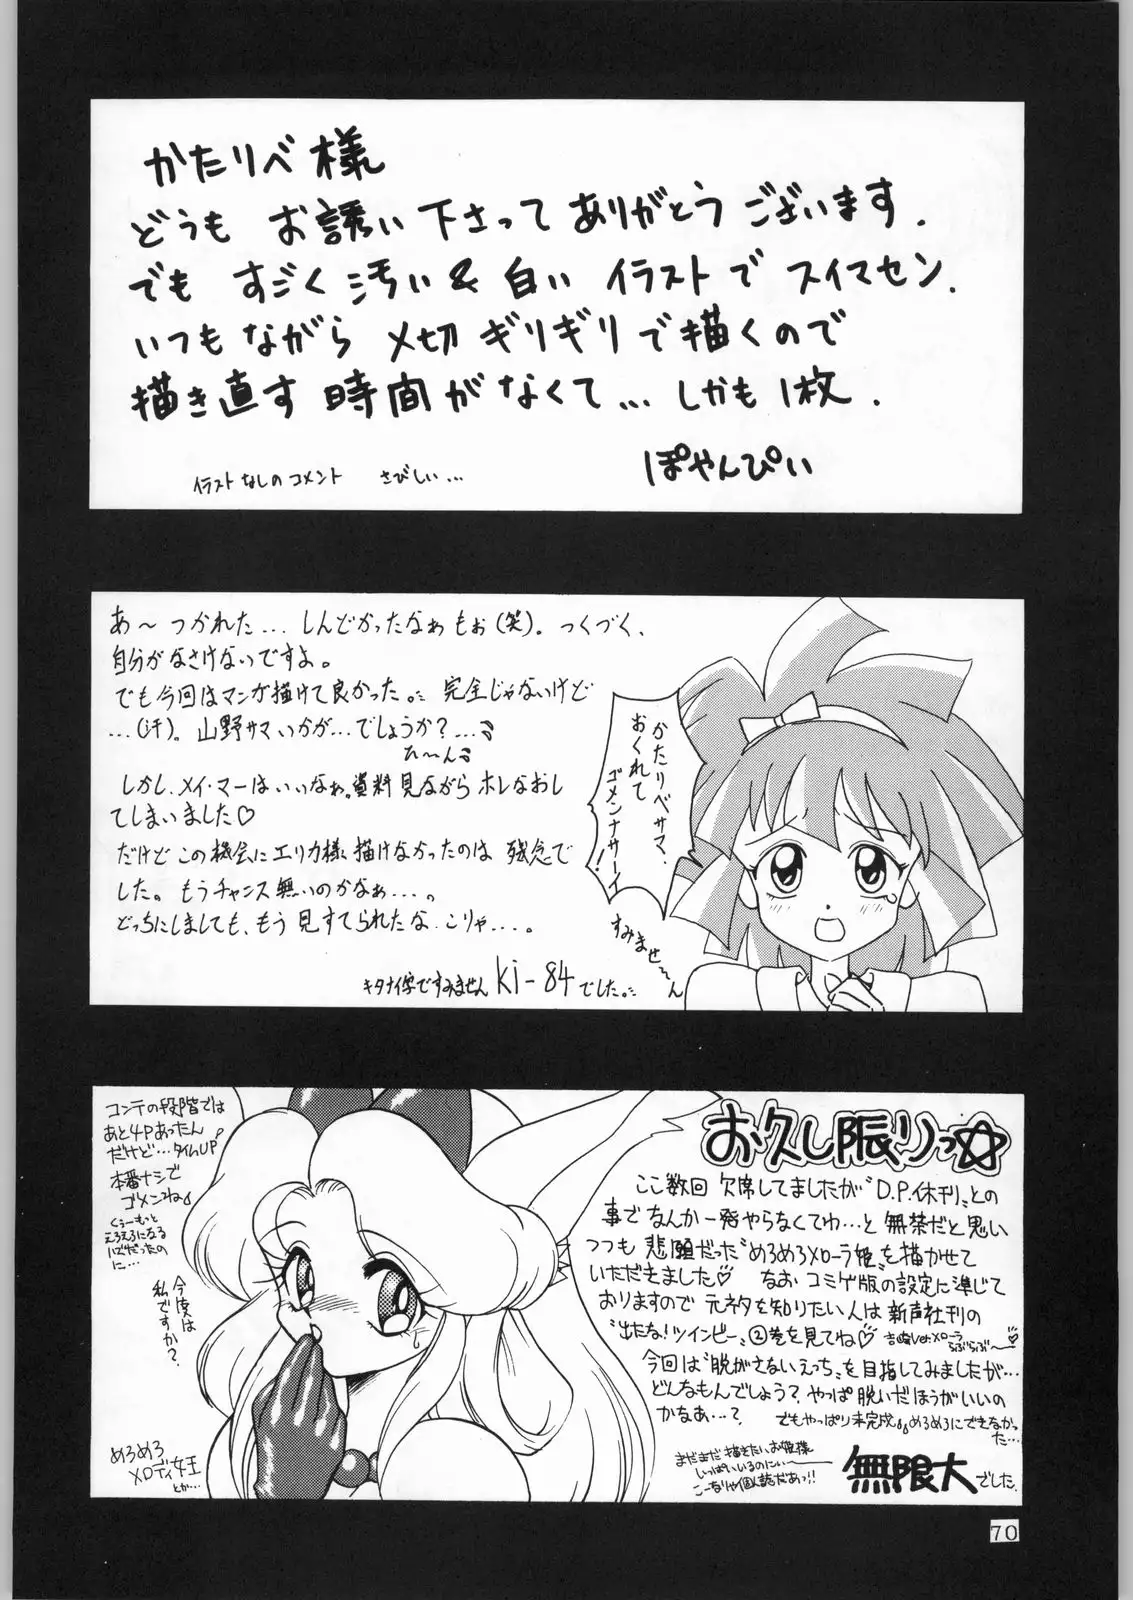 かたりべ様
どうも お誘い下さって ありがとうございます.
でも すごく 汚い & 白い イラストで スイマセン.
いつもながら 〆切 ギリギリで描くので
描き直す 時間がなくて… しかも 1枚.
イラストなしのコメント さびしい…
ぽやんぴい
あ〜 つかれた… しんどかったなぁもぉ(笑)。つくづく、
自分がなさけないですよ。
でも今回はマンガ描けて良かった。 完全じゃないけど
…(汗)。山野サマいかが…でしょうか?…
ひ〜ん
しかし、メイ・マーはいいなぁ。資料見ながら ホレなおし
てしまいました♡
だけど この機会に エリカ様 描けなかったのは 残念で
した。もうチャンス無いのかなぁ…。
どっちにしましても、もう 見すてられたな こりゃ…。
キタナイ字ですみません ki-84 でした。
かたりべサマ、
おくれて
ゴメンナサーイ!
すみませ〜ん
コンテの段階では
あと4Pあったん
だけど…タイムUP
本番ナシで
ゴメンね
くぅーもっと
えろえろになる
ハズだったの
に…
今度は
私ですか?
めろめろ
メロディ女王
とか…
お久し振りっ☆
ここ数回 欠席してましたが"D.P.休刊"との
事で なんか一発やらなくてわ…と 無茶だと思い
つつも 悲願だった"めろめろメローラ姫"を描かせて
いただきました♡ なお コミゲ版の設定に準じて
おりますので 元ネタを知りたい人は 新声社刊の
"出たな!ツインビー"②巻を見てね♡
今回は"脱がさないえっち"を目指してみましたが…
どんなもんでしょう? やっぱ 脱いだほうがいいの
かなあ…?
でもやっぱり未完成 めろめろにできなかっ
た…
まだまだ 描きたいお姫様
いっぱいいるのにぃ〜
こーなりゃ個人誌だあっ!!
無限大でした.
70